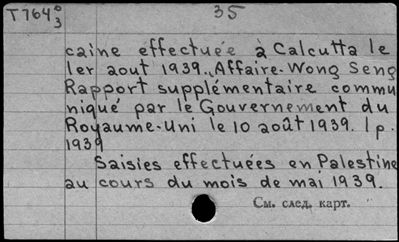 T764⁰₃ 35
caine effectuée à Calcutta le
1er aout 1939., Affaire-Wong Seng
Rapport supplémentaire commu
niqué par le Gouvernement du
Royaume-Uni le 10 août 1939. 1 p.
1939
Saisies effectuées en Palestine
au cours du mois de mai 1939.
См. след. карт.